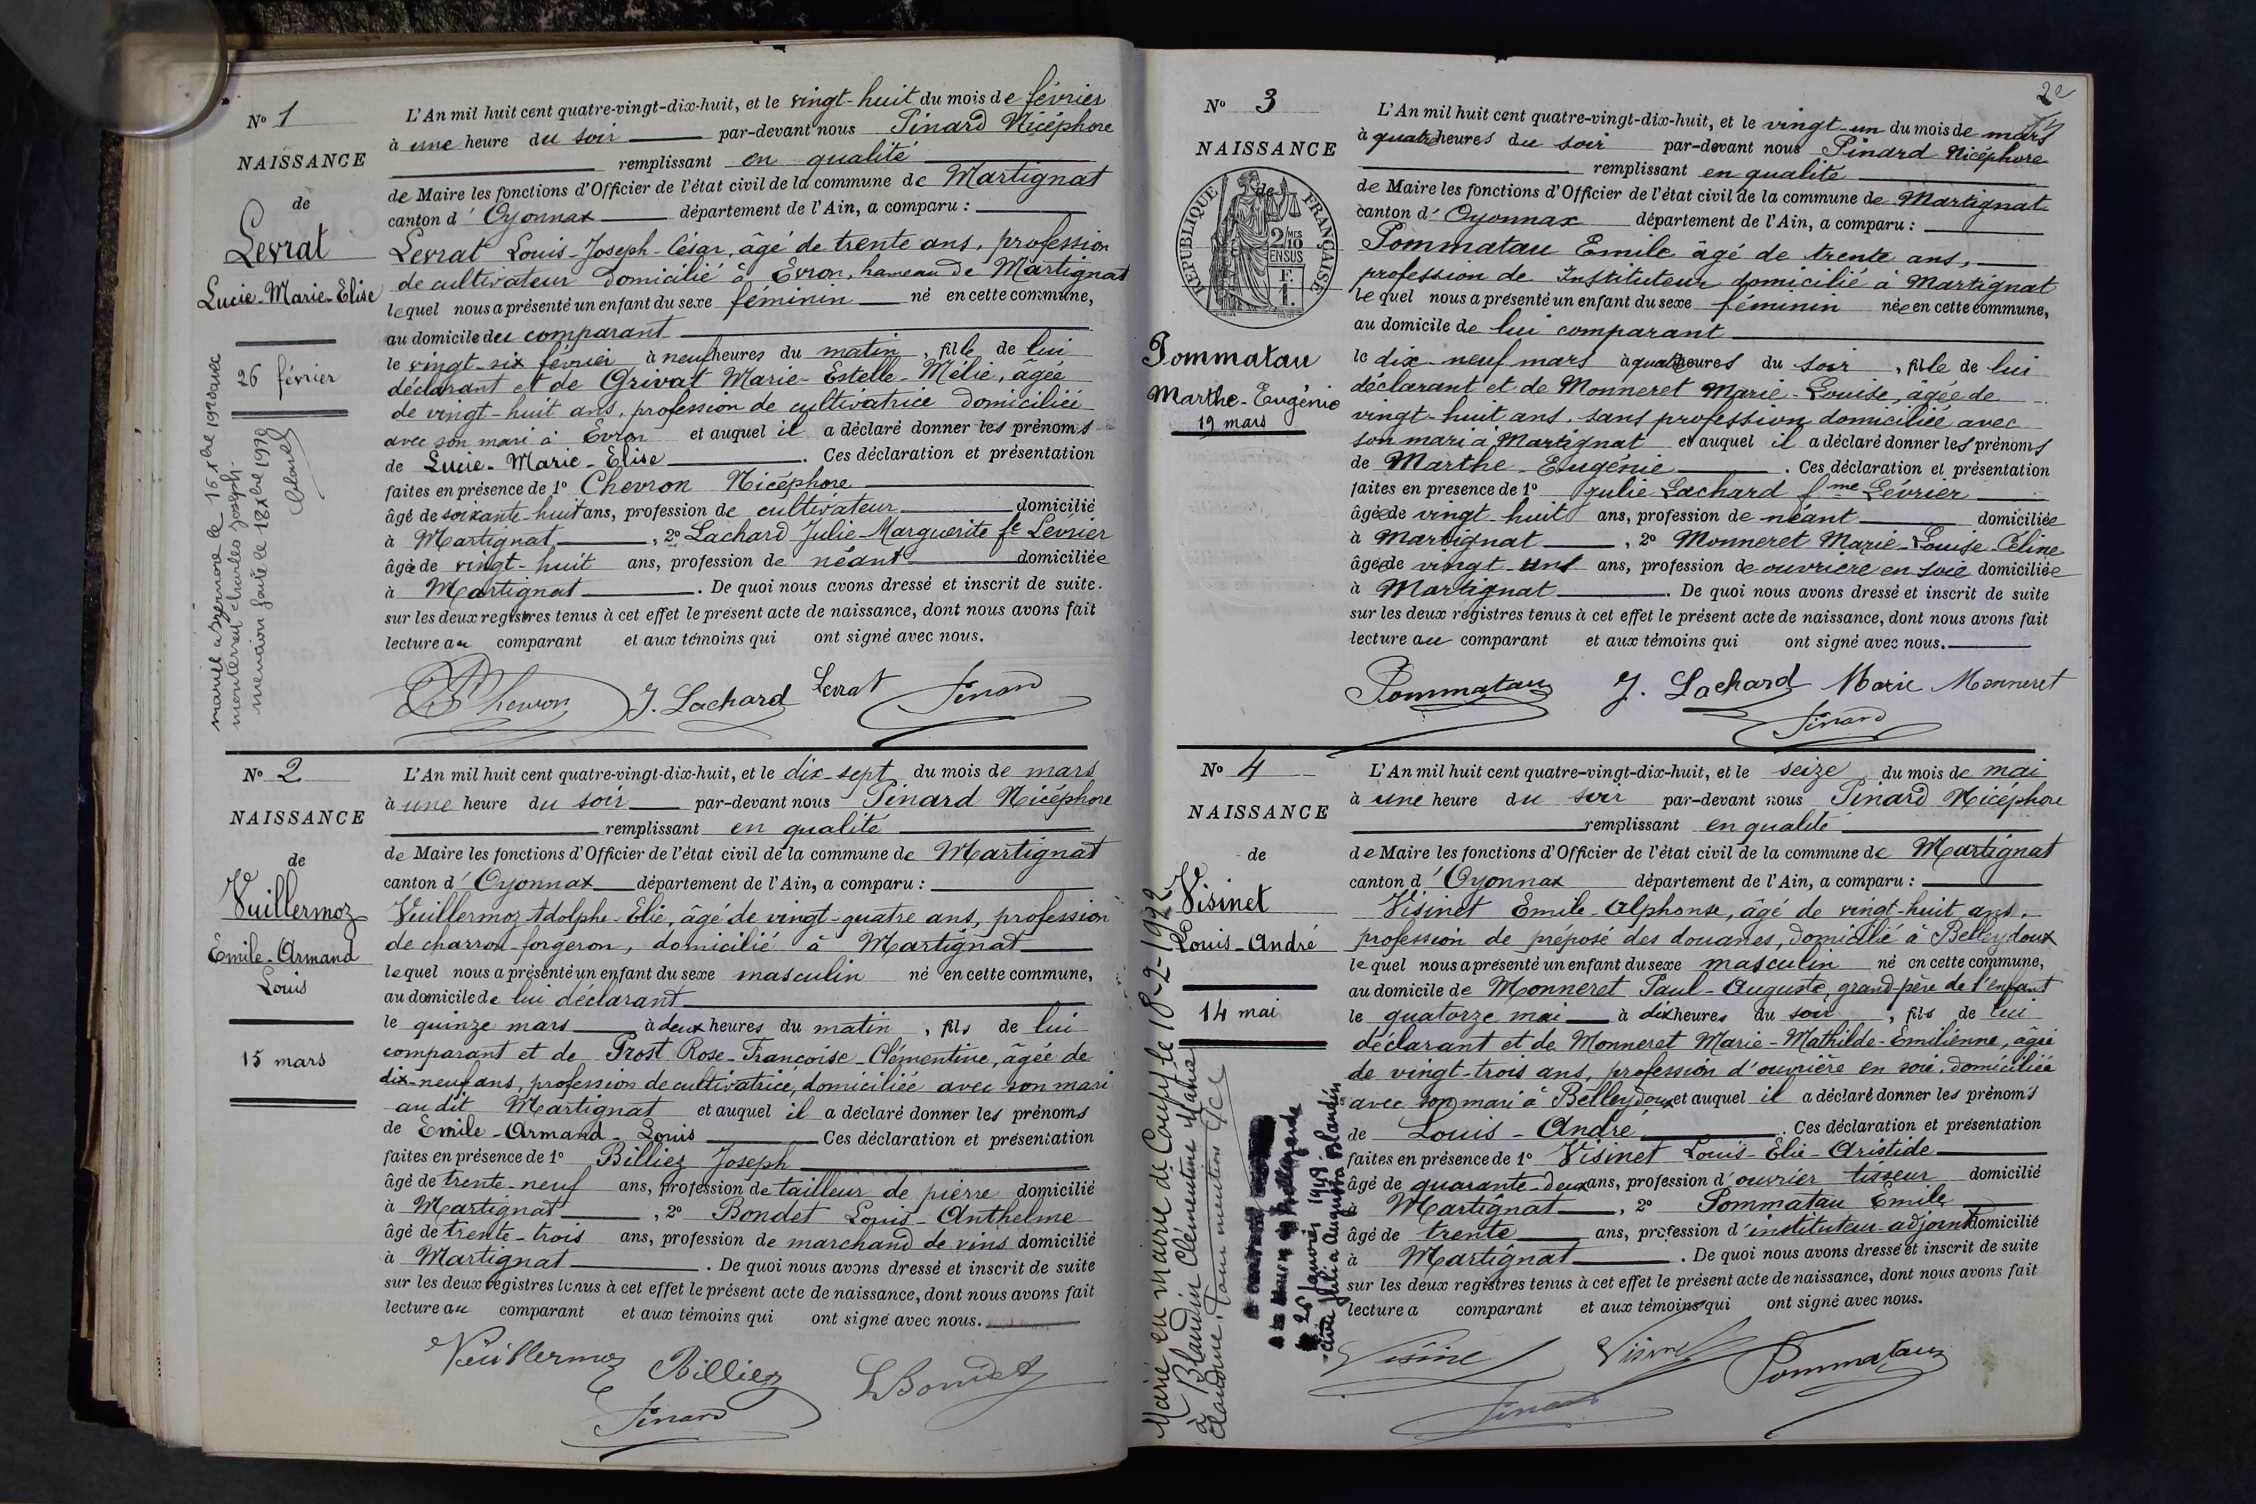 No 1
NAISSANCE
de
Levrat
Lucie-Marie-Elise
26 février
mariée à
le 16 xbre 1920 avec
Charles Joseph
mention faite le 18 xbre 1920
L'An mil huit cent quatre-vingt-dix-huit, et le vingt-huit du mois de février
à une heure du soir par-devant nous Pinard Nicéphore
remplissant en qualité
de Maire les fonctions d'Officier de l'état civil de la commune de Martignat
canton d'Oyonnax département de l'Ain, a comparu :
Levrat Louis-Joseph-César, âgé de trente ans, profession
de cultivateur domicilié à Evron, hameau de Martignat
lequel nous a présenté un enfant du sexe féminin né en cette commune,
au domicile du comparant
le vingt-six février à neuf heures du matin, fille de lui
déclarant et de Grivat Marie-Estelle-Mélie, âgée
de vingt-huit ans, profession de cultivatrice domiciliée
avec son mari à Evron et auquel il a déclaré donner les prénoms
de Lucie-Marie-Elise. Ces déclaration et présentation
faites en présence de 1o Chevron Nicéphore
âgé de soixante-huit ans, profession de cultivateur domicilié
à Martignat, 2o Lachard Julie-Marguerite fe Levrier
âgée de vingt-huit ans, profession de néant domiciliée
à Martignat. De quoi nous avons dressé et inscrit de suite.
sur les deux registres tenus à cet effet le présent acte de naissance, dont nous avons fait
lecture au comparant et aux témoins qui ont signé avec nous.
Chevron J. Lachard Levrat Pinard
No 2
NAISSANCE
de
Vuillermoz
Émile-Armand
Louis
15 mars
L'An mil huit cent quatre-vingt-dix-huit, et le dix-sept du mois de mars
à une heure du soir par-devant nous Pinard Nicéphore
remplissant en qualité
de Maire les fonctions d'Officier de l'état civil de la commune de Martignat
canton d'Oyonnax département de l'Ain, a comparu :
Vuillermoz Adolphe-Elie, âgé de vingt-quatre ans, profession
de charron-forgeron, domicilié à Martignat
lequel nous a présenté un enfant du sexe masculin né en cette commune,
au domicile de lui déclarant
le quinze mars à deux heures du matin, fils de lui
comparant et de Prost Rose-Françoise-Clémentine, âgée de
dix-neuf ans, profession de cultivatrice, domiciliée avec son mari
au dit Martignat et auquel il a déclaré donner les prénoms
de Emile-Armand-Louis Ces déclaration et présentation
faites en présence de 1o Billiez Joseph
âgé de trente-neuf ans, profession de tailleur de pierre domicilié
à Martignat, 2o Bondet Louis-Anthelme
âgé de trente-trois ans, profession de marchand de vins domicilié
à Martignat. De quoi nous avons dressé et inscrit de suite
sur les deux registres tenus à cet effet le présent acte de naissance, dont nous avons fait
lecture au comparant et aux témoins qui ont signé avec nous.
Vuillermoz Billiez L Bondet
Pinard
2e
No 3
NAISSANCE
de
RÉPUBLIQUE FRANÇAISE
2/10 MES EN SUS
Pommatau
Marthe-Eugénie
19 mars
L'An mil huit cent quatre-vingt-dix-huit, et le vingt-un du mois de mars
à quatre heures du soir par-devant nous Pinard Nicéphore
remplissant en qualité
de Maire les fonctions d'Officier de l'état civil de la commune de Martignat
canton d'Oyonnax département de l'Ain, a comparu :
Pommatau Emile âgé de trente ans,
profession de Instituteur domicilié à Martignat
lequel nous a présenté un enfant du sexe féminin née en cette commune,
au domicile de lui comparant
le dix-neuf mars à quatre heures du soir, fille de lui
déclarant et de Monneret Marie-Louise, âgée de
vingt-huit ans, sans profession domiciliée avec
son mari à Martignat et auquel il a déclaré donner les prénoms
de Marthe-Eugénie. Ces déclaration et présentation
faites en présence de 1o Julie Lachard fme Lévrier
âgée de vingt-huit ans, profession de néant domiciliée
à Martignat, 2o Monneret Marie-Louise-Céline
âgée de vingt-uns ans, profession de ouvrière en soie domiciliée
à Martignat. De quoi nous avons dressé et inscrit de suite
sur les deux registres tenus à cet effet le présent acte de naissance, dont nous avons fait
lecture au comparant et aux témoins qui ont signé avec nous.
Pommatau J. Lachard Marie Monneret
Pinard
No 4
NAISSANCE
de
Visinet
Louis-André
14 mai
Marié en mairie de Coupy le 18-2-1922
à Blandin Clémentine Marie
Claudine. Pour mention
Bellegarde
25 janvier 1949
Julia Augusta Blandin
L'An mil huit cent quatre-vingt-dix-huit, et le seize du mois de mai
à une heure du soir par-devant nous Pinard Nicéphore
remplissant en qualité
de Maire les fonctions d'Officier de l'état civil de la commune de Martignat
canton d'Oyonnax département de l'Ain, a comparu :
Visinet Emile-Alphonse, âgé de vingt-huit ans,
profession de préposé des douanes, domicilié à Belleydoux
lequel nous a présenté un enfant du sexe masculin né en cette commune,
au domicile de Monneret Paul-Auguste, grand-père de l'enfant
le quatorze mai à dix heures du soir, fils de lui
déclarant et de Monneret Marie-Mathilde-Emilienne, âgée
de vingt-trois ans, profession d'ouvrière en soie, domiciliée
avec son mari à Belleydoux et auquel il a déclaré donner les prénoms
de Louis-André. Ces déclaration et présentation
faites en présence de 1o Visinet Louis-Elie-Aristide
âgé de quarante-deux ans, profession d'ouvrier tisseur domicilié
à Martignat, 2o Pommatau Emile
âgé de trente ans, profession d'instituteur-adjoint domicilié
à Martignat. De quoi nous avons dressé et inscrit de suite
sur les deux registres tenus à cet effet le présent acte de naissance, dont nous avons fait
lecture a comparant et aux témoins qui ont signé avec nous.
Visinet Visinet Pommatau
Pinard